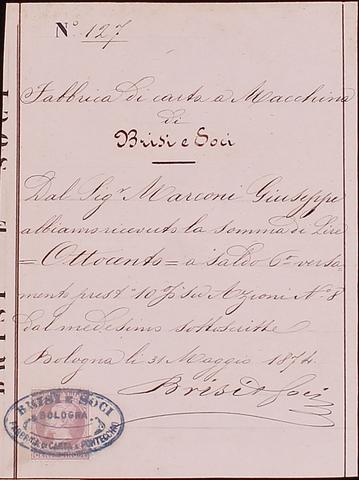 N° 127
Fabbrica di carta a Macchina
di
Brisi e Soci
Dal Sig.r Marconi Giuseppe
abbiamo ricevuto la somma di Lire
= Ottocento = a saldo 6° versa
mento prest° 10 % su Azioni N° 8
dal medesimo sottoscritte
Bologna li 31 Maggio 1874
Brisi e Soci
BRISI E SOCI
BOLOGNA
FABBRICA DI CARTA A PONTECCHIO